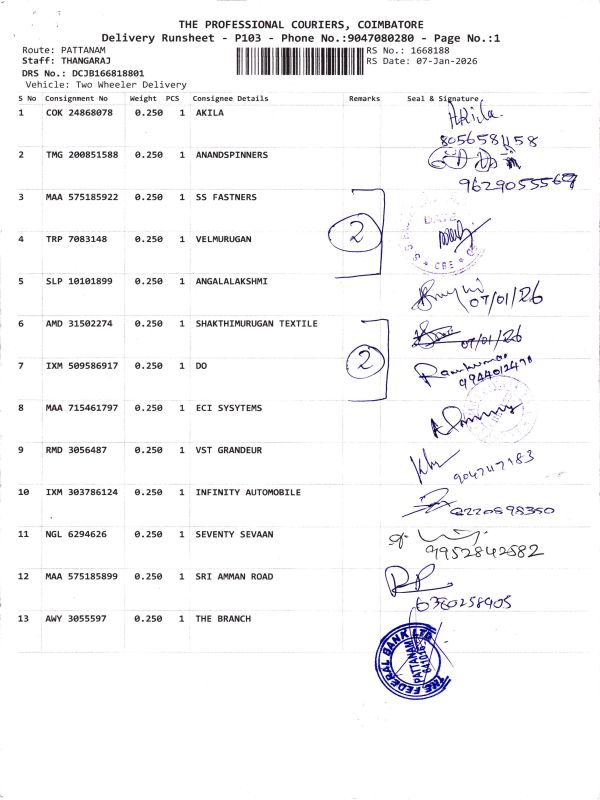 THE PROFESSIONAL COURIERS, COIMBATORE
Delivery Runsheet - P103 - Phone No.:9047080280 - Page No.:1
Route: PATTANAM
RS No.: 1668188
Staff: THANGARAJ
RS Date: 07-Jan-2026
DRS No.: DCJB166818801
Vehicle: Two Wheeler Delivery
S No Consignment No Weight PCS Consignee Details Remarks Seal & Signature
1 COK 24868078 0.250 1 AKILA Akila
8056581158
2 TMG 200851588 0.250 1 ANANDSPINNERS
9629055569
3 MAA 575185922 0.250 1 SS FASTNERS
DATE
4 TRP 7083148 0.250 1 VELMURUGAN 2
CBE
5 SLP 10101899 0.250 1 ANGALALAKSHMI
07/01/26
6 AMD 31502274 0.250 1 SHAKTHIMURUGAN TEXTILE
07/01/26
7 IXM 509586917 0.250 1 DO 2
8 MAA 715461797 0.250 1 ECI SYSYTEMS
9 RMD 3056487 0.250 1 VST GRANDEUR
10 IXM 303786124 0.250 1 INFINITY AUTOMOBILE
11 NGL 6294626 0.250 1 SEVENTY SEVAAN
9952842582
12 MAA 575185899 0.250 1 SRI AMMAN ROAD RP
6380258905
13 AWY 3055597 0.250 1 THE BRANCH
THE FEDERAL BANK LTD.
PATTANAM